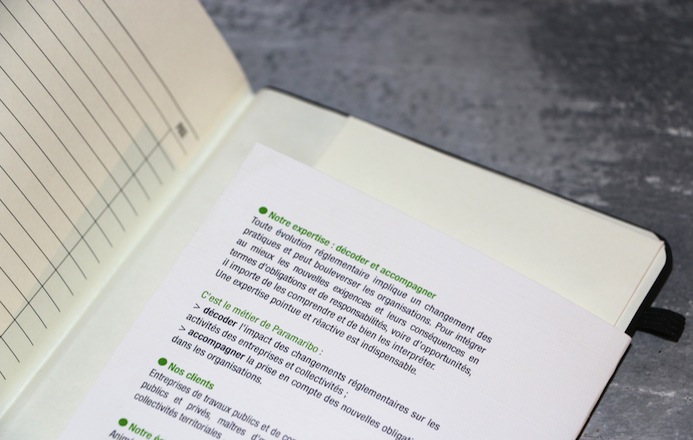 Notre expertise : décoder et accompagner
Toute évolution réglementaire implique un changement des
pratiques et peut bouleverser les organisations. Pour intégrer
au mieux les nouvelles exigences et leurs conséquences en
termes d'obligations et de responsabilités, voire d'opportunités,
il importe de les comprendre et de bien les interpréter.
Une expertise pointue et réactive est indispensable.
C'est le métier de Paramaribo :
> décoder l'impact des changements réglementaires sur les
activités des entreprises et collectivités ;
> accompagner la prise en compte des nouvelles
dans les organisations.
Nos clients
Entreprises de travaux publics et de
publics et privés, maîtres
collectivités territoriales
Notre